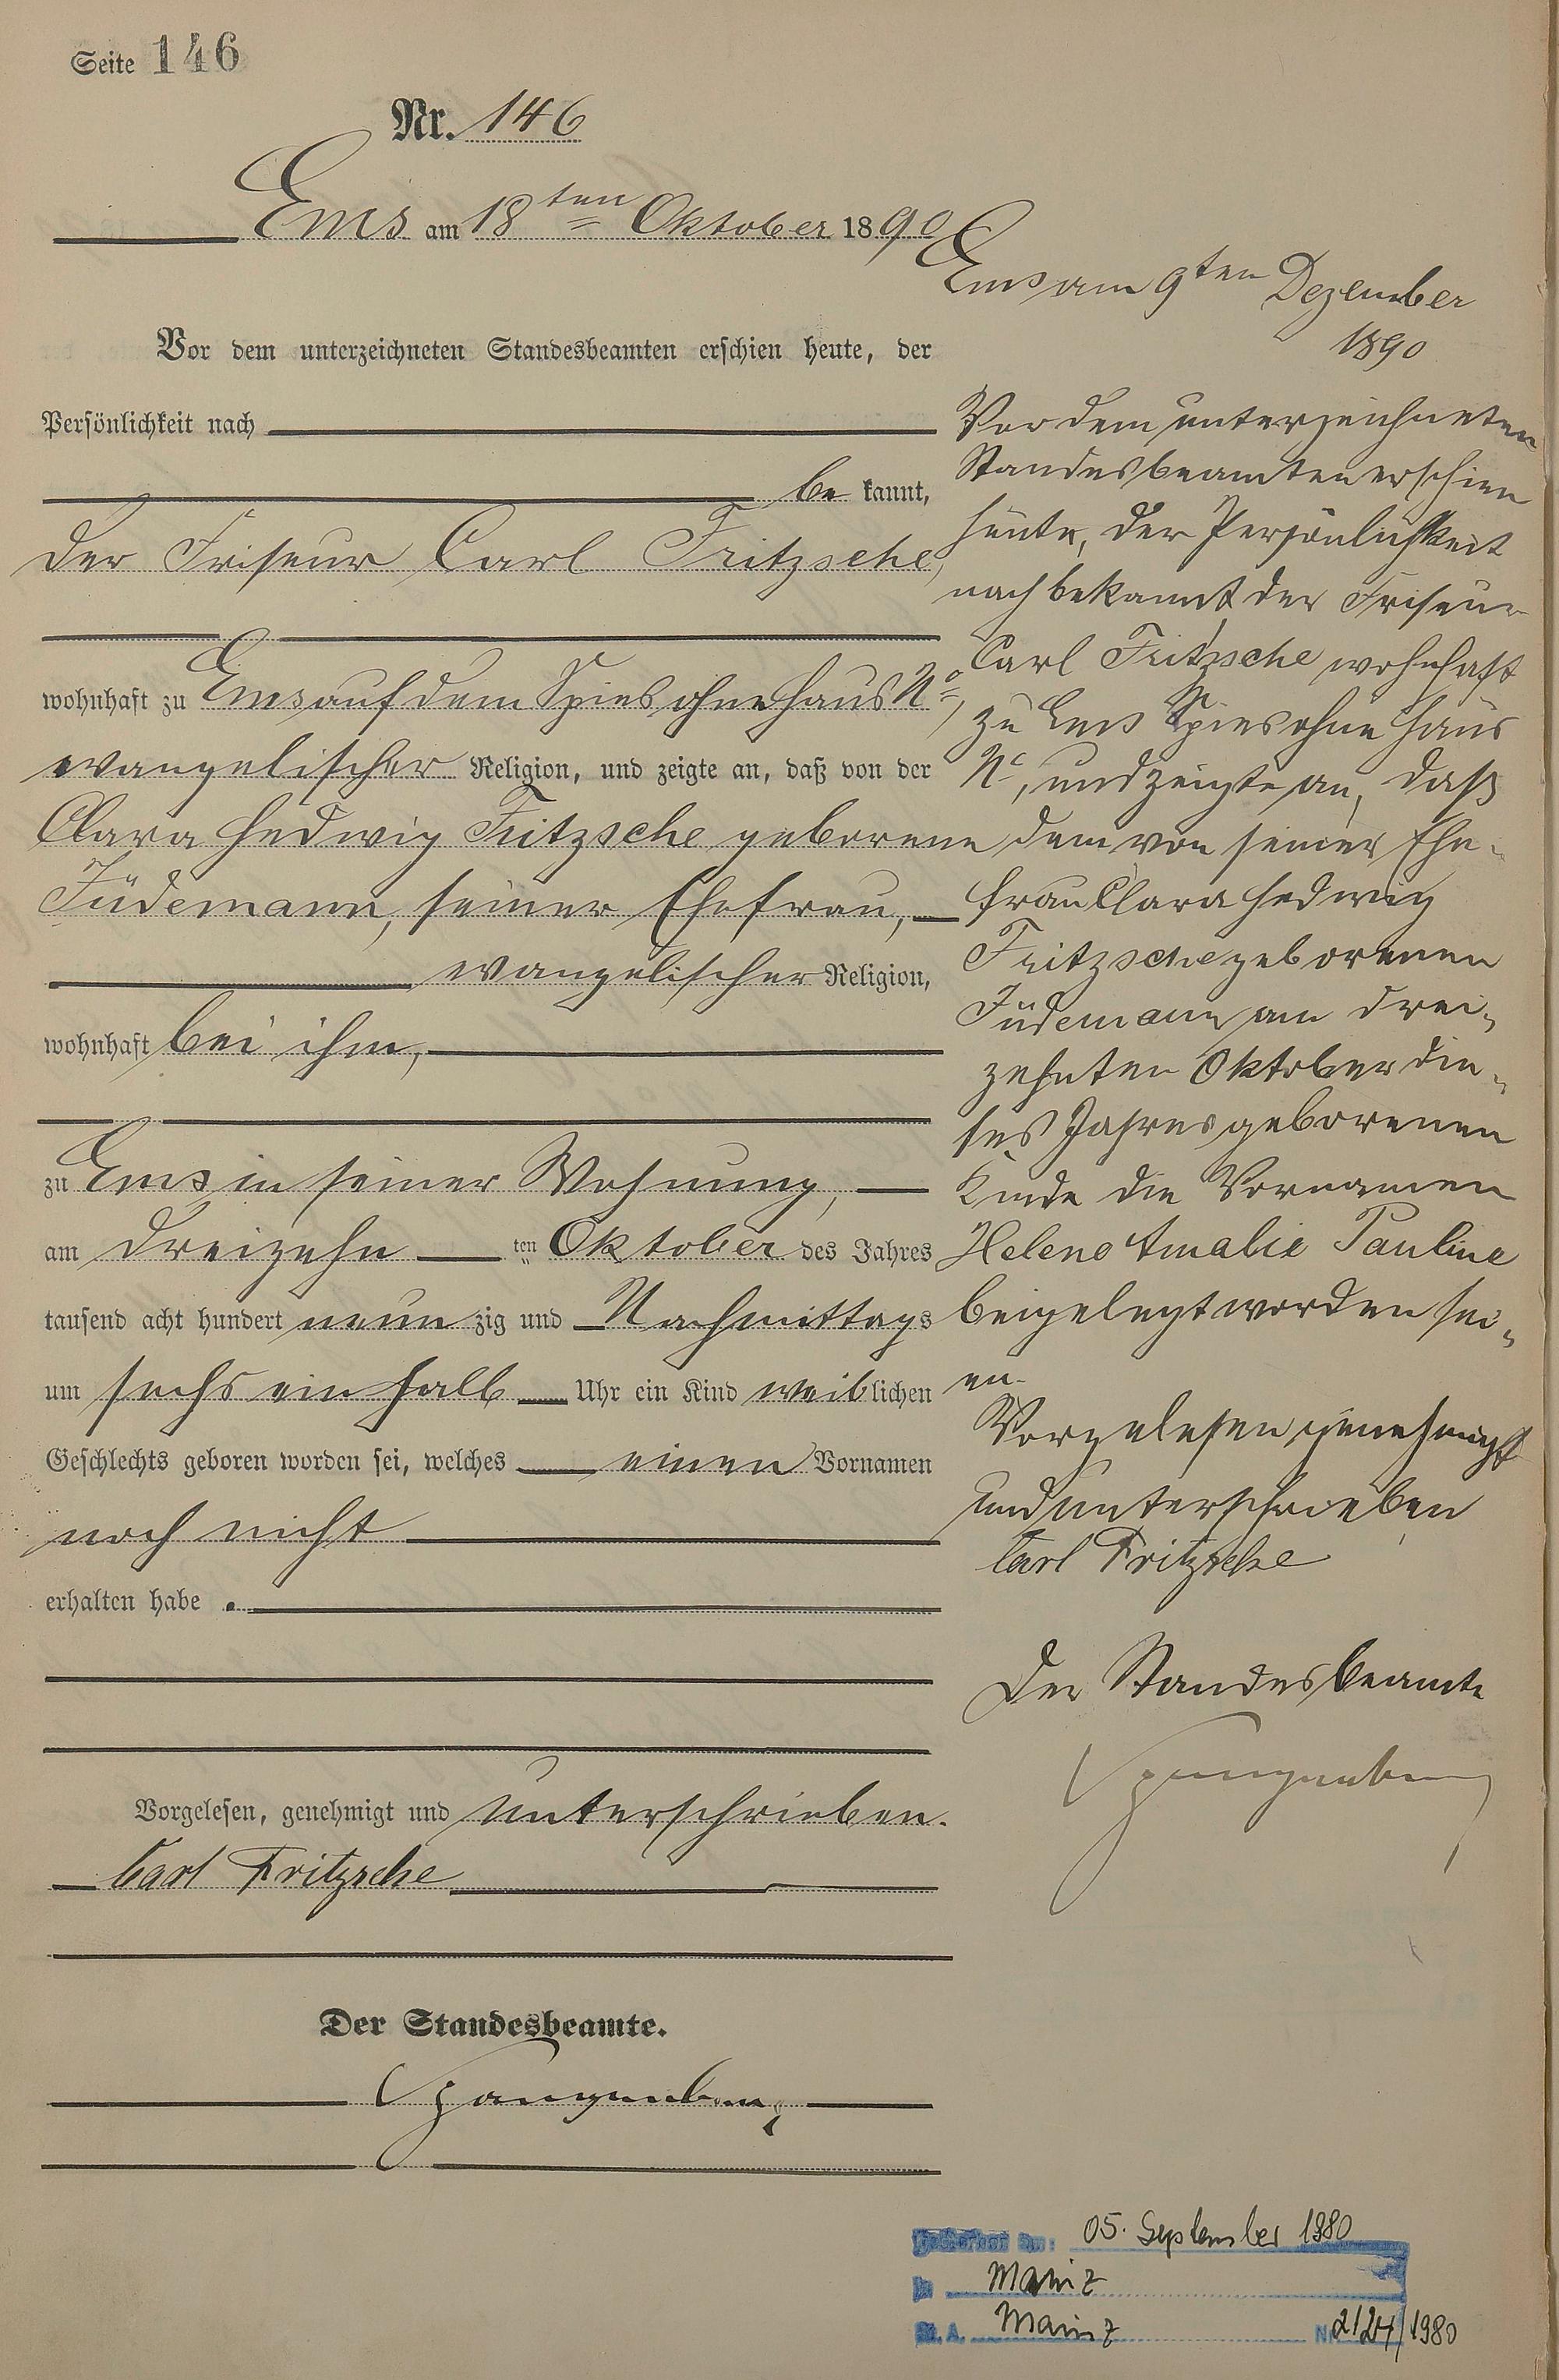 Seite 146
Nr. 146
Ems am 18ten Oktober 1890
Vor dem unterzeichneten Standesbeamten erschien heute, der
Persönlichkeit nach
be kannt,
der Friseur Carl Fritzsche,
wohnhaft zu Ems auf dem Spies ohne Haus No,
evangelischer Religion, und zeigte an, daß von der
Clara Hedwig Fritzsche geborene
Jüdemann, seiner Ehefrau,
evangelischer Religion,
wohnhaft bei ihm,
zu Ems in seiner Wohnung,
am dreizehn ten Oktober des Jahres
tausend acht hundert neun zig und Nachmittags
um sechs ein halb Uhr ein Kind weiblichen
Geschlechts geboren worden sei, welches einen Vornamen
noch nicht
erhalten habe.
Vorgelesen, genehmigt und unterschrieben.
Carl Fritzsche
Der Standesbeamte.
Ems am 9ten Dezember
1890
Vor dem unterzeichneten
Standesbeamten erschien
heute, der Persönlichkeit
nach bekannt, der Friseur
Carl Fritzsche wohnhaft
zu Ems Spies ohne Haus
No, und zeigte an, daß
dem von seiner Ehe-
frau Clara Hedwig
Fritzsche geborenen
Jüdemann am drei-
zehnten Oktober die-
ses Jahres geborenen
Kinde die Vornamen
Helene Amalie Pauline
beigelegt worden sei-
en.
Vorgelesen genehmigt
und unterschrieben
Carl Fritzsche
Der Standesbeamte
Gestorben am: 05. September 1980
in Mainz
St. A. Mainz Nr. 2124/1980